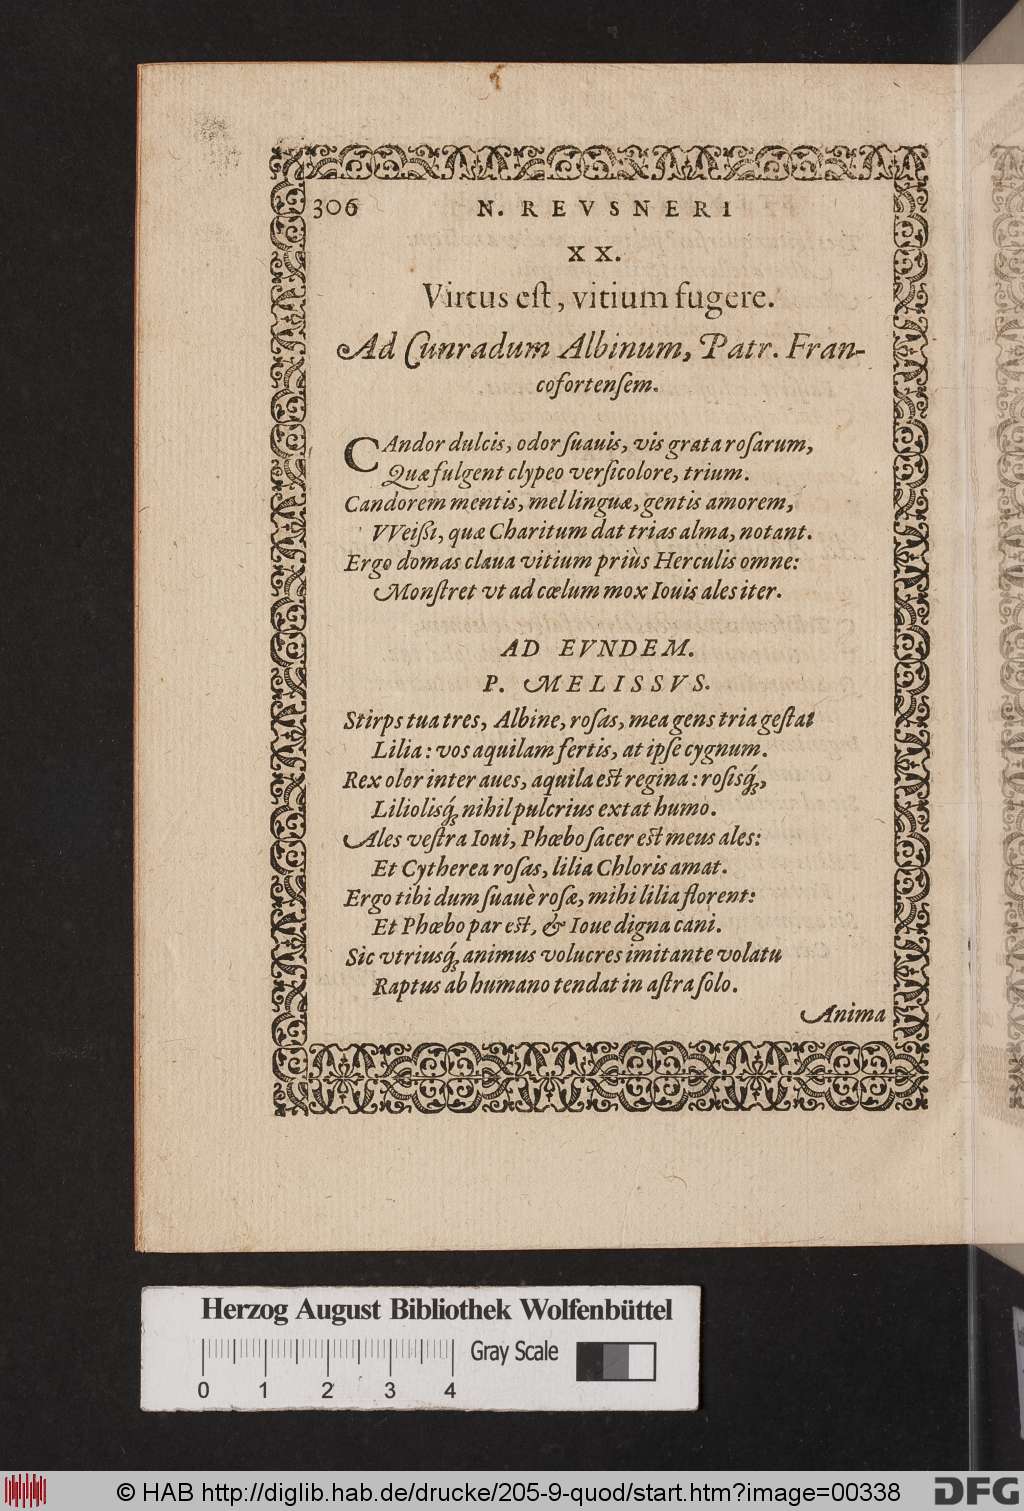 306 N. REVSNERI
XX.
Virtus eſt, vitium fugere.
Ad Cunradum Albinum, Patr. Fran-
cofortenſem.
CAndor dulcis, odor ſuauis, vis grata roſarum,
Quæ fulgent clypeo verſicolore, trium.
Candorem mentis, mel linguæ, gentis amorem,
VVeißi, quæ Charitum dat trias alma, notant.
Ergo domas claua vitium priùs Herculis omne:
Monſtret vt ad cœlum mox Iouis ales iter.
AD EVNDEM.
P. MELISSVS.
Stirps tua tres, Albine, roſas, mea gens tria geſtat
Lilia: vos aquilam fertis, at ipſe cygnum.
Rex olor inter aues, aquila eſt regina: roſisq́;,
Liliolisq́; nihil pulcrius extat humo.
Ales veſtra Ioui, Phœbo ſacer eſt meus ales:
Et Cytherea roſas, lilia Chloris amat.
Ergo tibi dum ſuauè roſæ, mihi lilia florent:
Et Phœbo par eſt, & Ioue digna cani.
Sic vtriusq́; animus volucres imitante volatu
Raptus ab humano tendat in aſtra ſolo.
Anima
Herzog August Bibliothek Wolfenbüttel
Gray Scale
0 1 2 3 4
© HAB http://diglib.hab.de/drucke/205-9-quod/start.htm?image=00338
DFG